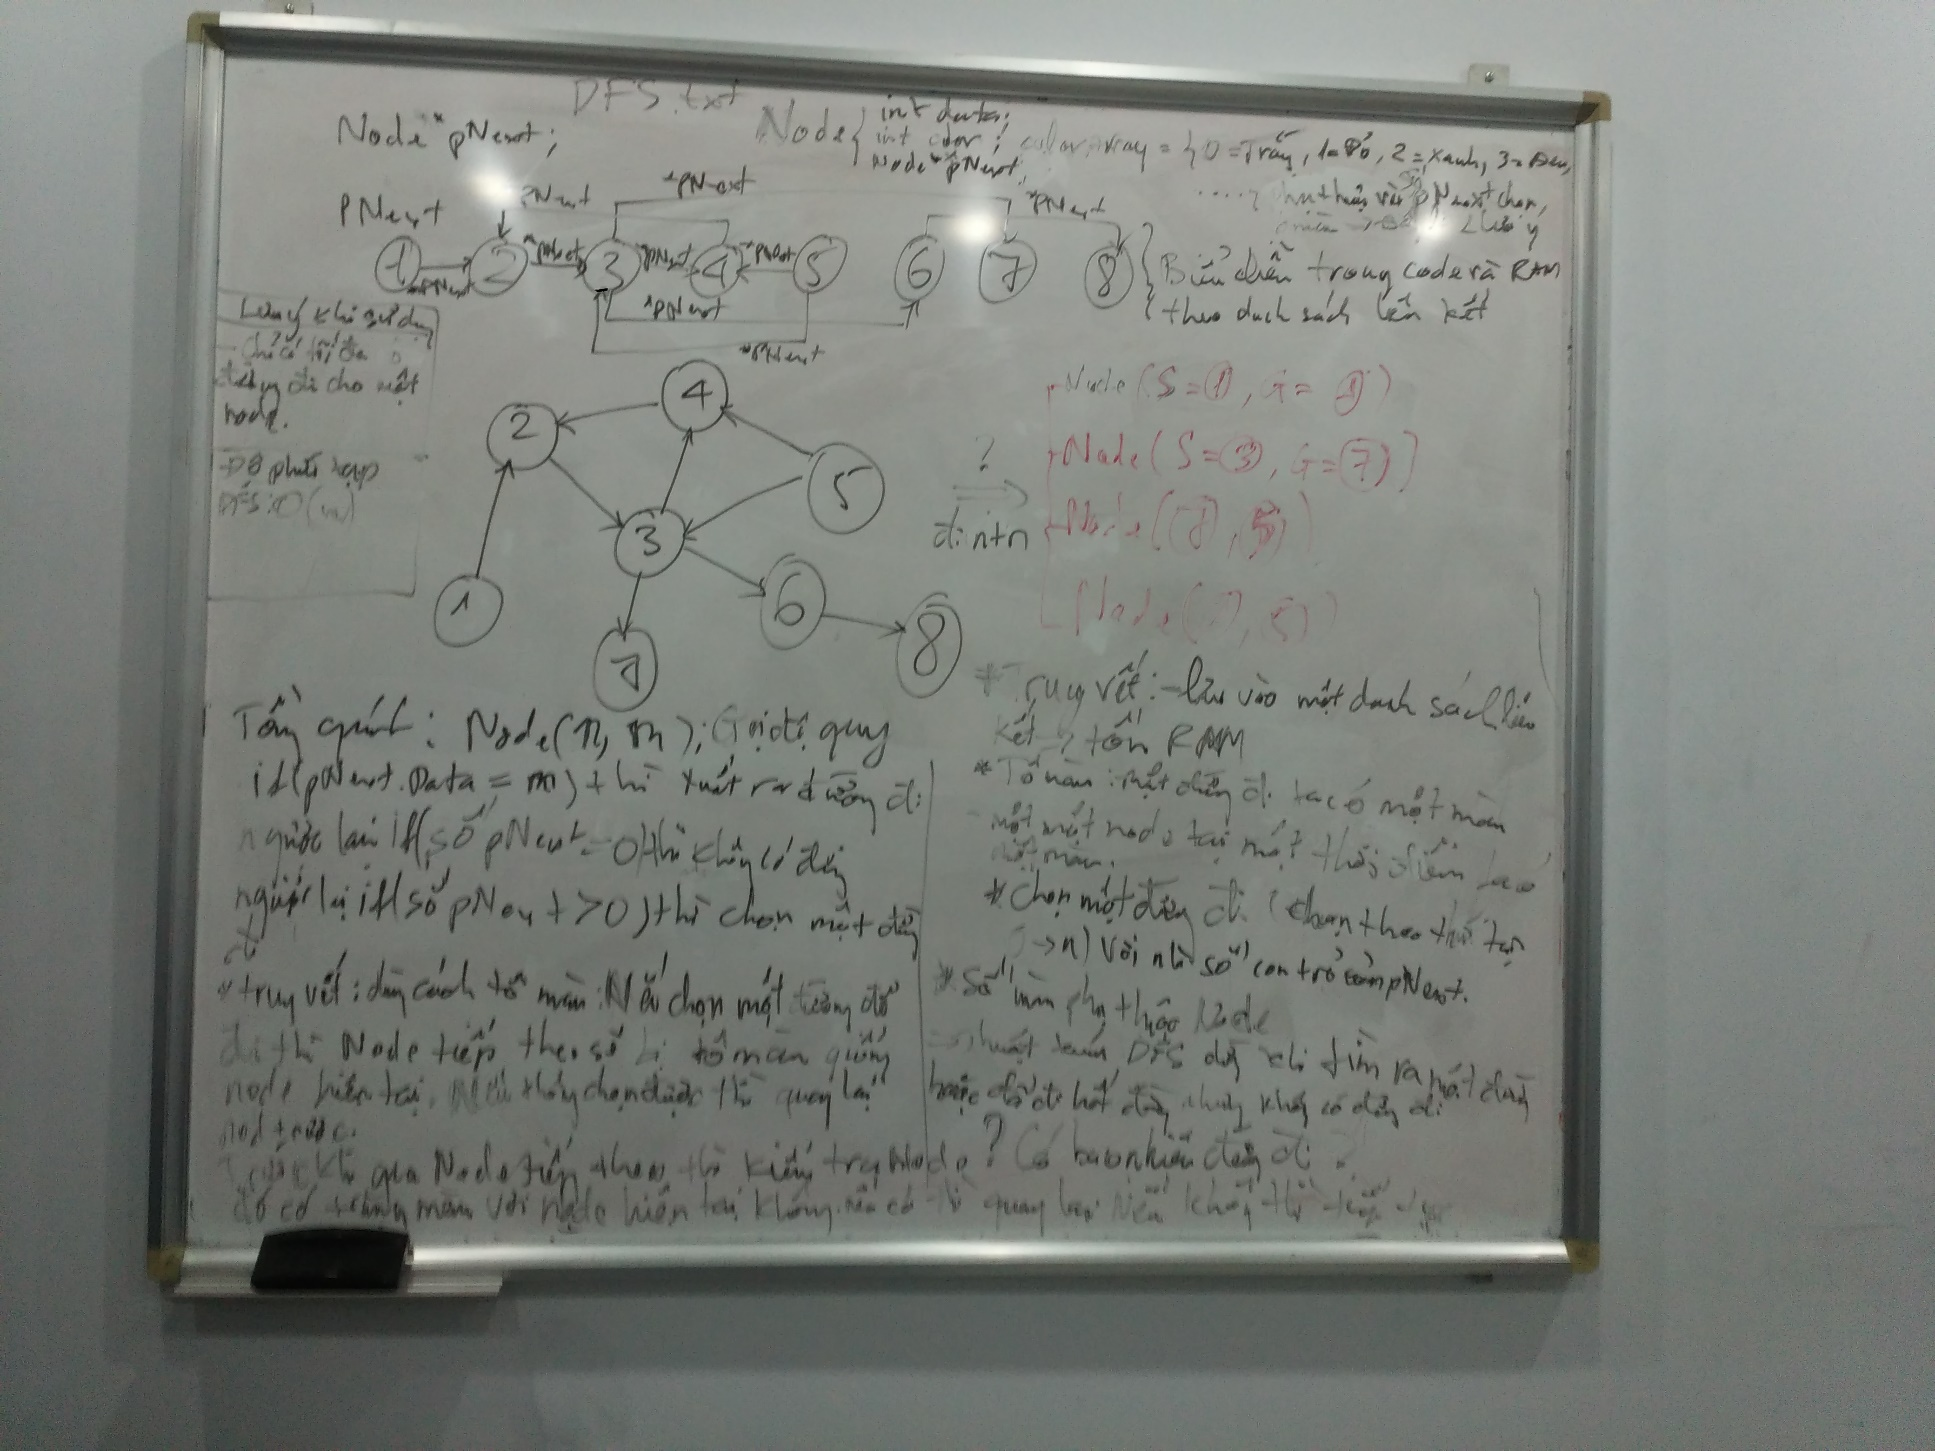 DFS.txt
Node *pNext;
Node { int data;
int color;
Node **pNext;
colorArray = { 0 = Trắng, 1 = Đỏ, 2 = xanh, 3 = Đen,
pNext chọn,
Lưu ý
pNext
*pNext
*pNext
*pNext
1 2 3 4 5 6 7 8
*pNext *pNext *pNext *pNext
*pNext
*pNext
Biểu diễn trong code và RAM
theo danh sách liên kết
Lưu ý khi sử dụng
- Chỉ có tối đa
đường đi cho một
node.
Độ phức tạp
DFS: O(
4
2
5
3
1
6
7
8
?
đi ntn
Node (S = 1, G =
Node (S = 3, G = 7)
Node (
Node (
Tổng quát: Node(n, m); Gọi đệ quy
if(pNext.Data = m) thì xuất ra đường đi
ngược lại if(số pNext = 0) thì không có đường
ngược lại if(số pNext > 0) thì chọn một đường
đi
* truy vết: dùng cách tô màu: Nếu chọn một đường để
đi thì Node tiếp theo sẽ bị tô màu giống
node hiện tại. Nếu không chọn được thì quay lại
node trước.
Trước khi qua Node tiếp theo thì kiểm tra Node
đó có trùng màu với node hiện tại không nếu có thì quay lại Nếu không thì tiếp tục
* Truy vết: - lưu vào một danh sách liên
kết → tốn RAM
* Tô màu: một đường đi ta có một màu
một node tại một thời điểm ta có
một màu.
* Chọn một đường đi (chọn theo thứ tự
→ n) Với n là số con trỏ của pNext.
* Số màu phụ thuộc Node
thuật toán DFS dừng khi tìm ra một đường
hoặc đã đi hết đường nhưng không có đường đi
? Có bao nhiêu đường đi ?